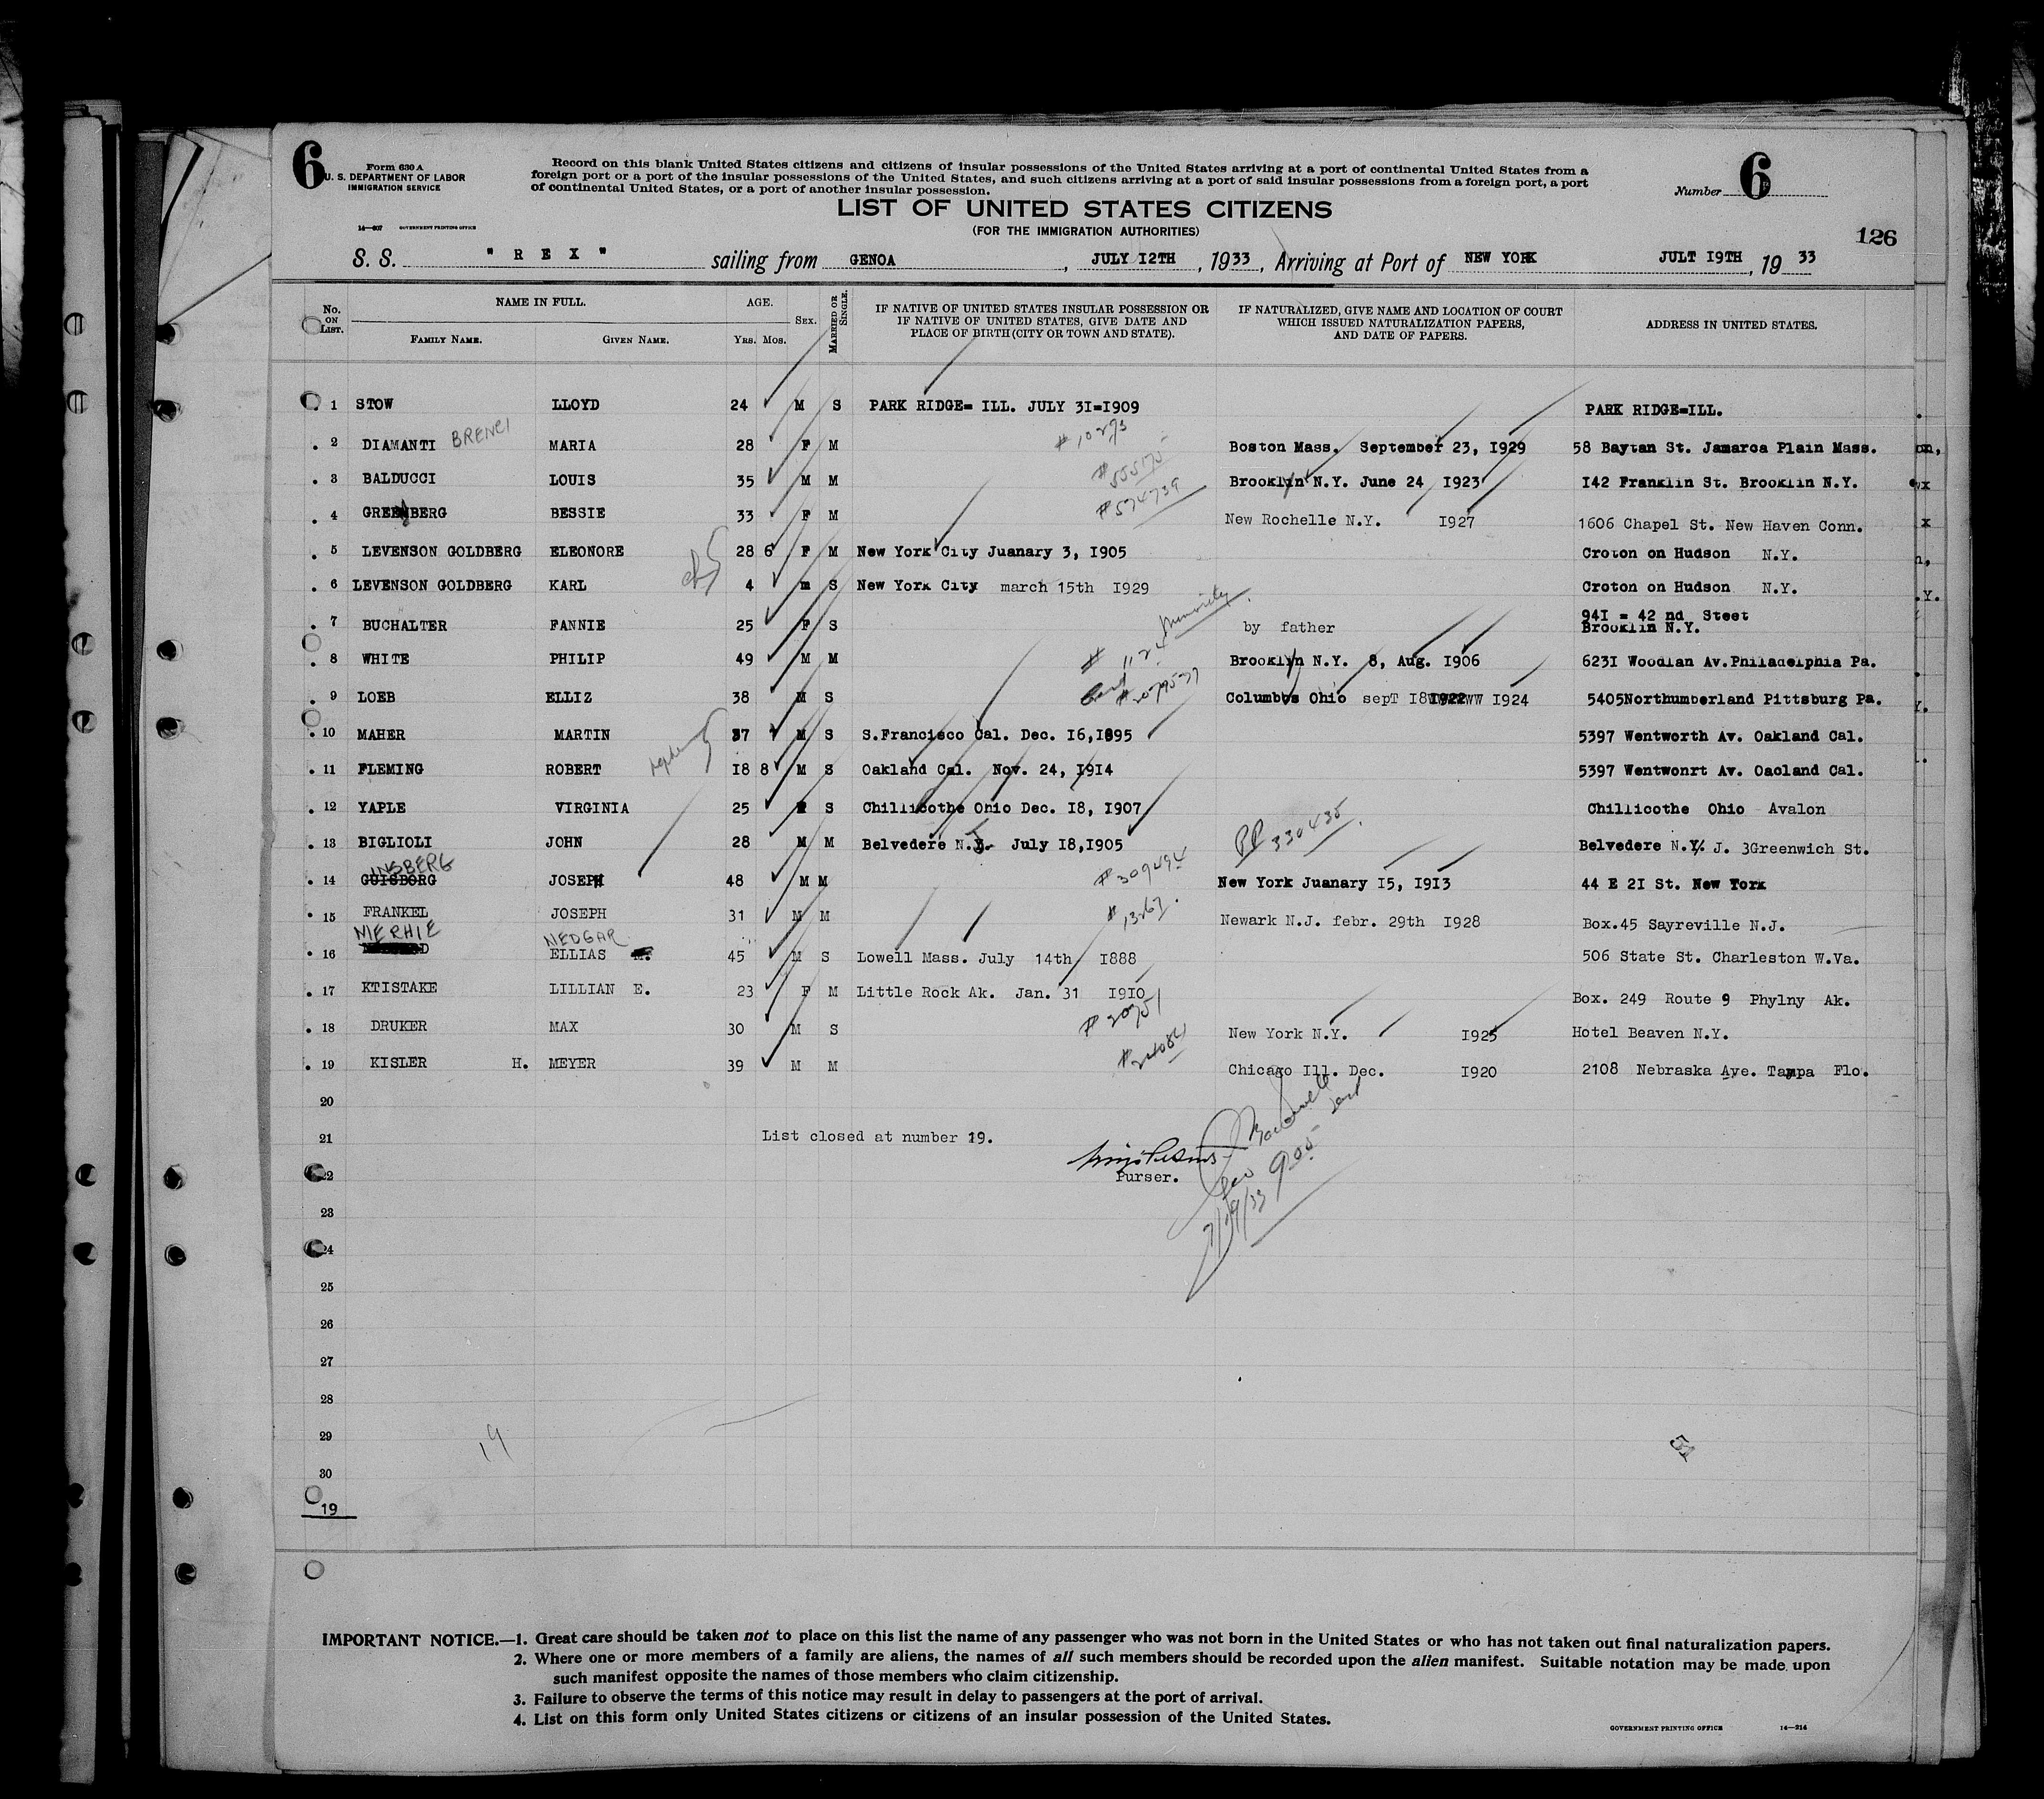 6
Form 630 A
U. S. DEPARTMENT OF LABOR
IMMIGRATION SERVICE
14—607 GOVERNMENT PRINTING OFFICE
Record on this blank United States citizens and citizens of insular possessions of the United States arriving at a port of continental United States from a
foreign port or a port of the insular possessions of the United States, and such citizens arriving at a port of said insular possessions from a foreign port, a port
of continental United States, or a port of another insular possession.
Number 6
LIST OF UNITED STATES CITIZENS
(FOR THE IMMIGRATION AUTHORITIES)
126
S. S. " R E X " sailing from GENOA , JULY I2TH , 1933 , Arriving at Port of NEW YORK JULT I9TH , 19 33
No. ON LIST. NAME IN FULL. FAMILY NAME. GIVEN NAME. AGE. YRS. MOS. SEX. MARRIED OR SINGLE. IF NATIVE OF UNITED STATES INSULAR POSSESSION OR IF NATIVE OF UNITED STATES, GIVE DATE AND PLACE OF BIRTH (CITY OR TOWN AND STATE). IF NATURALIZED, GIVE NAME AND LOCATION OF COURT WHICH ISSUED NATURALIZATION PAPERS, AND DATE OF PAPERS. ADDRESS IN UNITED STATES.
1 STOW LLOYD 24 M S PARK RIDGE= ILL. JULY 3I=I909 PARK RIDGE=ILL.
2 DIAMANTI BRENCI MARIA 28 F M # 10273 Boston Mass. September 23, I929 58 Baytan St. Jamarca Plain Mass.
3 BALDUCCI LOUIS 35 M M #555175 Brooklyn N.Y. June 24 I923 I42 Franklin St. Brooklin N.Y.
4 GREENBERG BESSIE 33 F M #574739 New Rochelle N.Y. I927 1606 Chapel St. New Haven Conn.
5 LEVENSON GOLDBERG ELEONORE 28 6 F M New York City Juanary 3, I905 Croton on Hudson N.Y.
6 LEVENSON GOLDBERG KARL 4 m S New York City march 15th I929 Croton on Hudson N.Y.
7 BUCHALTER FANNIE 25 F S Minority by father 94I = 42 nd Steet
Brooklin N.Y.
8 WHITE PHILIP 49 M M # 1124 Brooklyn N.Y. 8, Aug. I906 623I Woodlan Av.Philadelphia Pa.
9 LOEB ELLIZ 38 M S Columbus Ohio sepT I8 I924 5405Northumberland Pittsburg Pa.
10 MAHER MARTIN 37 M S S.Francisco Cal. Dec. I6,I895 5397 Wentworth Av. Oakland Cal.
11 FLEMING ROBERT I8 8 M S Oakland Cal. Nov. 24, I9I4 5397 Wentwonrt Av. Oacland Cal.
12 YAPLE VIRGINIA 25 F S Chillicothe Ohio Dec. I8, I907 Chillicothe Ohio Avalon
13 BIGLIOLI JOHN 28 M M Belvedere N.J. July I8,I905 PP 330435 Belvedere N.Y. J. 3Greenwich St.
INSBERG
14 GUISBORG JOSEPH 48 M M #309494 New York Juanary I5, I9I3 44 E 2I St. New York
15 FRANKEL JOSEPH 31 M M # 13267. Newark N.J. febr. 29th I928 Box.45 Sayreville N.J.
MERHIE NEDGAR
16 ELLIAS 45 M S Lowell Mass. July 14th I888 506 State St. Charleston W.Va.
17 KTISTAKE LILLIAN E. 23 F M Little Rock Ak. Jan. 31 I9I0 Box. 249 Route 9 Phylny Ak.
18 DRUKER MAX 30 M S New York N.Y. I925 Hotel Beaven N.Y.
19 KISLER H. MEYER 39 M M Chicago Ill. Dec. I920 2108 Nebraska Aye. Tampa Flo.
20
21 List closed at number 19.
22 Purser.
23 7/19/33 905
24
25
26
27
28
29 19
30
19
IMPORTANT NOTICE.—1. Great care should be taken not to place on this list the name of any passenger who was not born in the United States or who has not taken out final naturalization papers.
2. Where one or more members of a family are aliens, the names of all such members should be recorded upon the alien manifest. Suitable notation may be made upon
such manifest opposite the names of those members who claim citizenship.
3. Failure to observe the terms of this notice may result in delay to passengers at the port of arrival.
4. List on this form only United States citizens or citizens of an insular possession of the United States.
GOVERNMENT PRINTING OFFICE 14—214